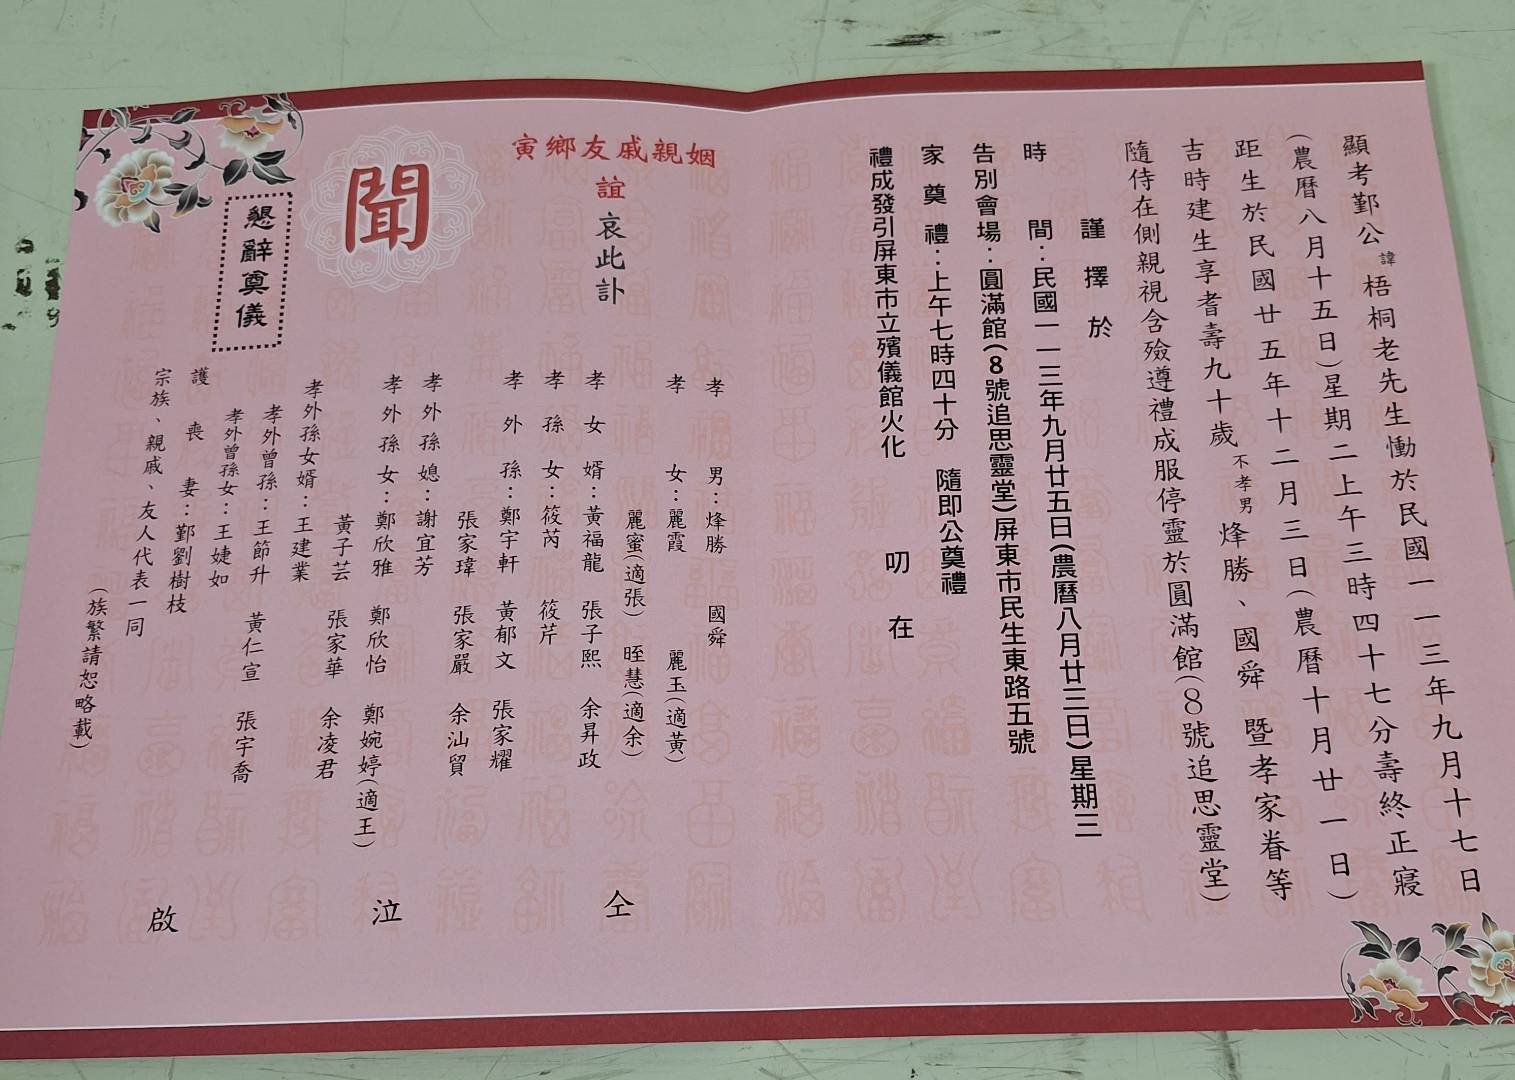 顯考鄞公諱梧桐老先生慟於民國一一三年九月十七日
(農曆八月十五日)星期二上午三時四十七分壽終正寢
距生於民國廿五年十二月三日(農曆十月廿一日)
吉時建生享耆壽九十歲不孝男烽勝、國舜 暨孝家眷等
隨侍在側親視含殮遵禮成服停靈於圓滿館(8號追思靈堂)
謹擇於
時間：民國一一三年九月廿五日(農曆八月廿三日)星期三
告別會場：圓滿館(8號追思靈堂)屏東市民生東路五號
家奠禮：上午七時四十分 隨即公奠禮
禮成發引屏東市立殯儀館火化 叨在
姻親戚友鄉寅
誼 哀此訃
聞
懇辭奠儀
孝男：烽勝 國舜
孝女：麗霞 麗玉(適黃)
麗蜜(適張) 眰慧(適余)
孝女婿：黃福龍 張子熙 余昇政
孝孫女：筱芮 筱芹
孝外孫：鄭宇軒 黃郁文 張家耀
張家瑋 張家嚴 余汕貿
孝外孫媳：謝宜芳
孝外孫女：鄭欣雅 鄭欣怡 鄭婉婷(適王)
黃子芸 張家華 余凌君
孝外孫女婿：王建業
孝外曾孫：王節升 黃仁宣 張宇喬
孝外曾孫女：王婕如
護喪妻：鄞劉樹枝
宗族、親戚、友人代表一同
(族繁請恕略載)
仝
泣
啟